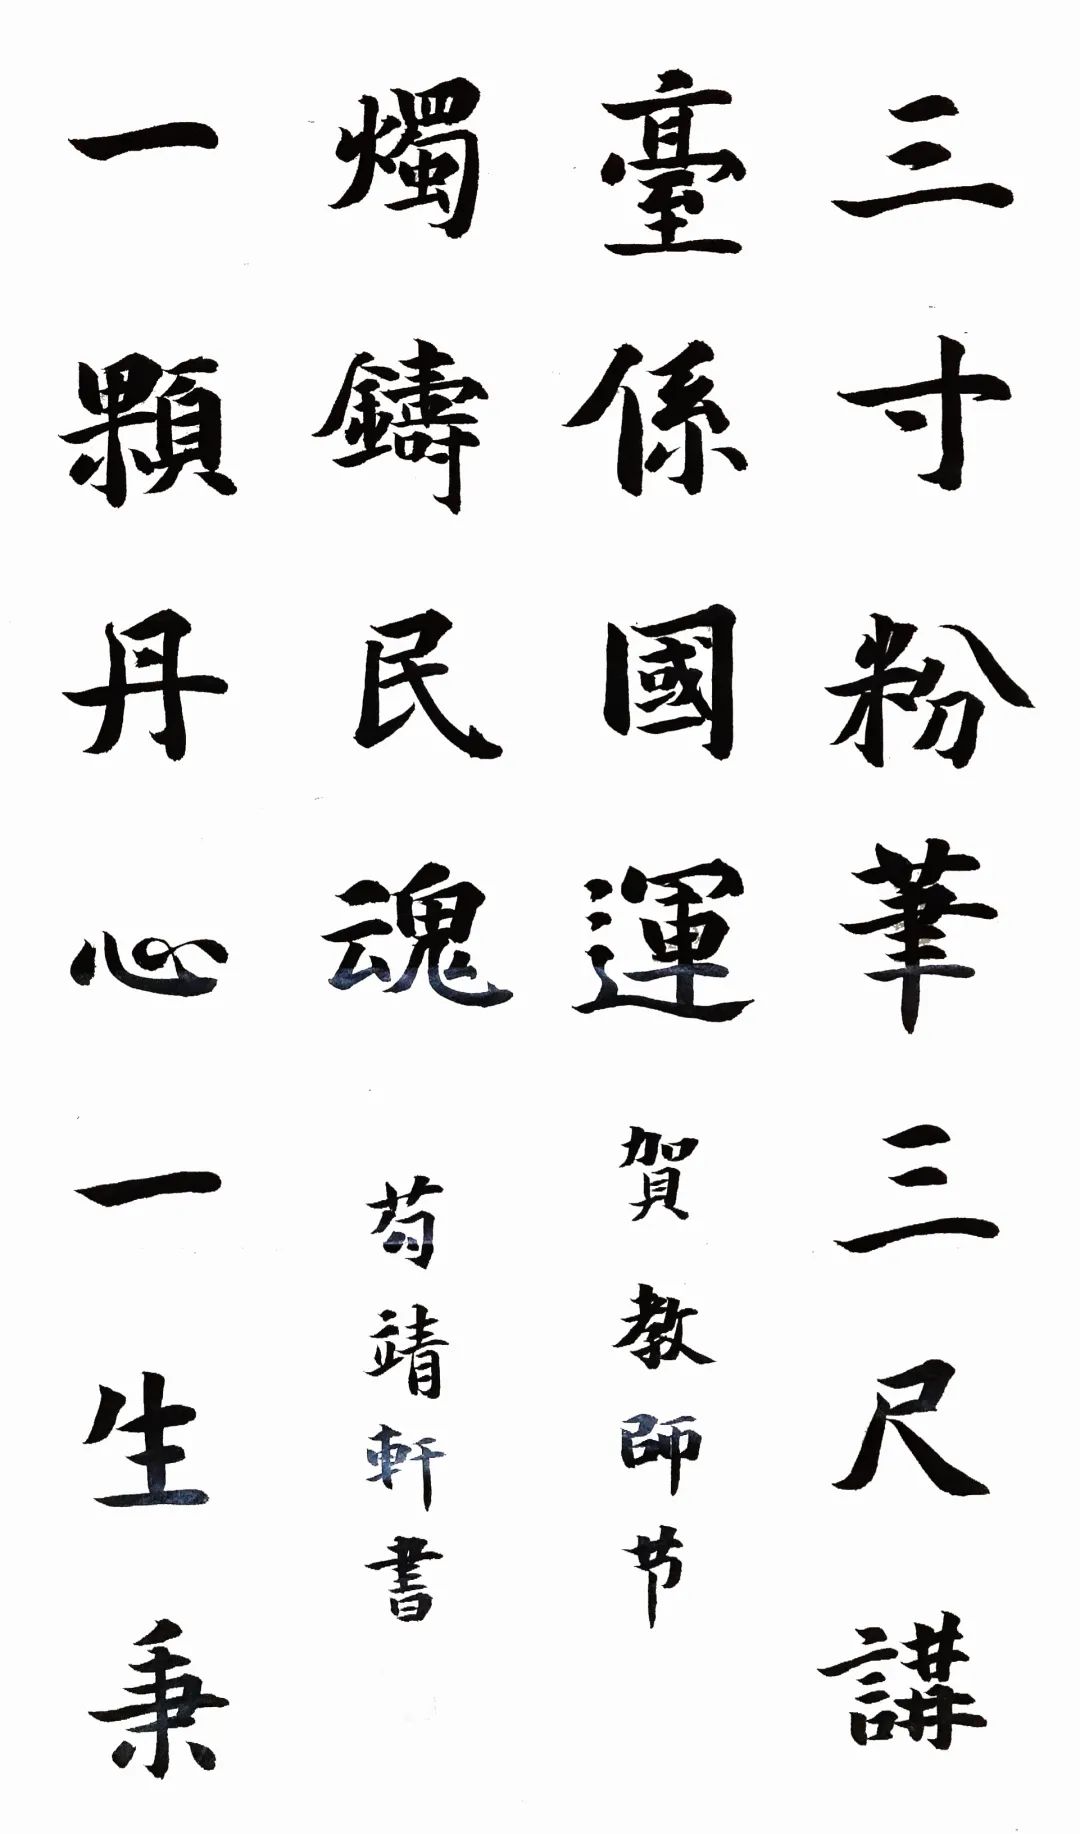 三寸粉筆三尺講
臺係國運
賀教師节
一顆丹心一生秉
燭鑄民魂
苟靖軒書